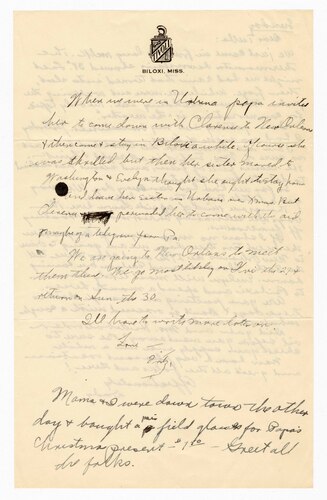 TIVOLI
BILOXI, MISS.
When we were in Urbana papa invited
her to come down with Clarence to New Orleans
& then come & stay in Biloxi awhile. Of course she
was thrilled but then her sister moved to
Washington & Evelyn thought she ought to stay home
and have her sister in Urbana as Xmas. But
Clarence persuaded her to come with the aid
& maybe a telegram from Pa.
We are going to New Orleans to meet
them there. We go most likely on Fri. the 28 &
return on Sun. the 30.
I'll have to write more later on.
Love
Mama & I were down town the other
day & bought a pair field glasses for Papa's
Christmas present - Greet all
the folks.